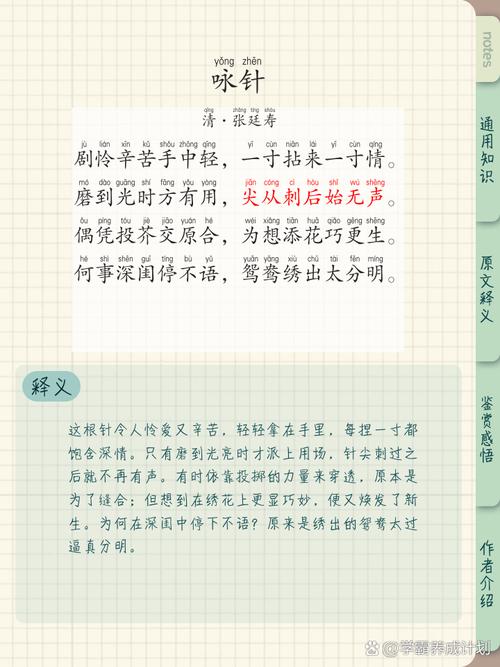 yǒng zhēn
咏针
qīng zhāng tíng shòu
清·张廷寿
jù lián xīn kǔ shǒu zhōng qīng yī cùn niān lái yī cùn qíng
剧怜辛苦手中轻，一寸拈来一寸情。
mó dào guāng shí fāng yǒu yòng jiān cóng cì hòu shǐ wú shēng
磨到光时方有用，尖从刺后始无声。
ǒu píng tóu jiè jiāo yuán hé wèi xiǎng tiān huā qiǎo gèng shēng
偶凭投芥交原合，为想添花巧更生。
hé shì shēn guī tíng bù yǔ yuān yāng xiù chū tài fēn míng
何事深闺停不语，鸳鸯绣出太分明。
释义
这根针令人怜爱又辛苦，轻轻拿在手里，每捏一寸都
饱含深情。只有磨到光亮时才派上用场，针尖刺过之
后就不再有声。有时依靠投掷的力量来穿透，原本是
为了缝合；但想到在绣花上更显巧妙，便又焕发了新
生。为何在深闺中停下不语？原来是绣出的鸳鸯太过
逼真分明。
notes
通用知识
原文释义
鉴赏感悟
作者介绍
Bai du @学霸养成计划